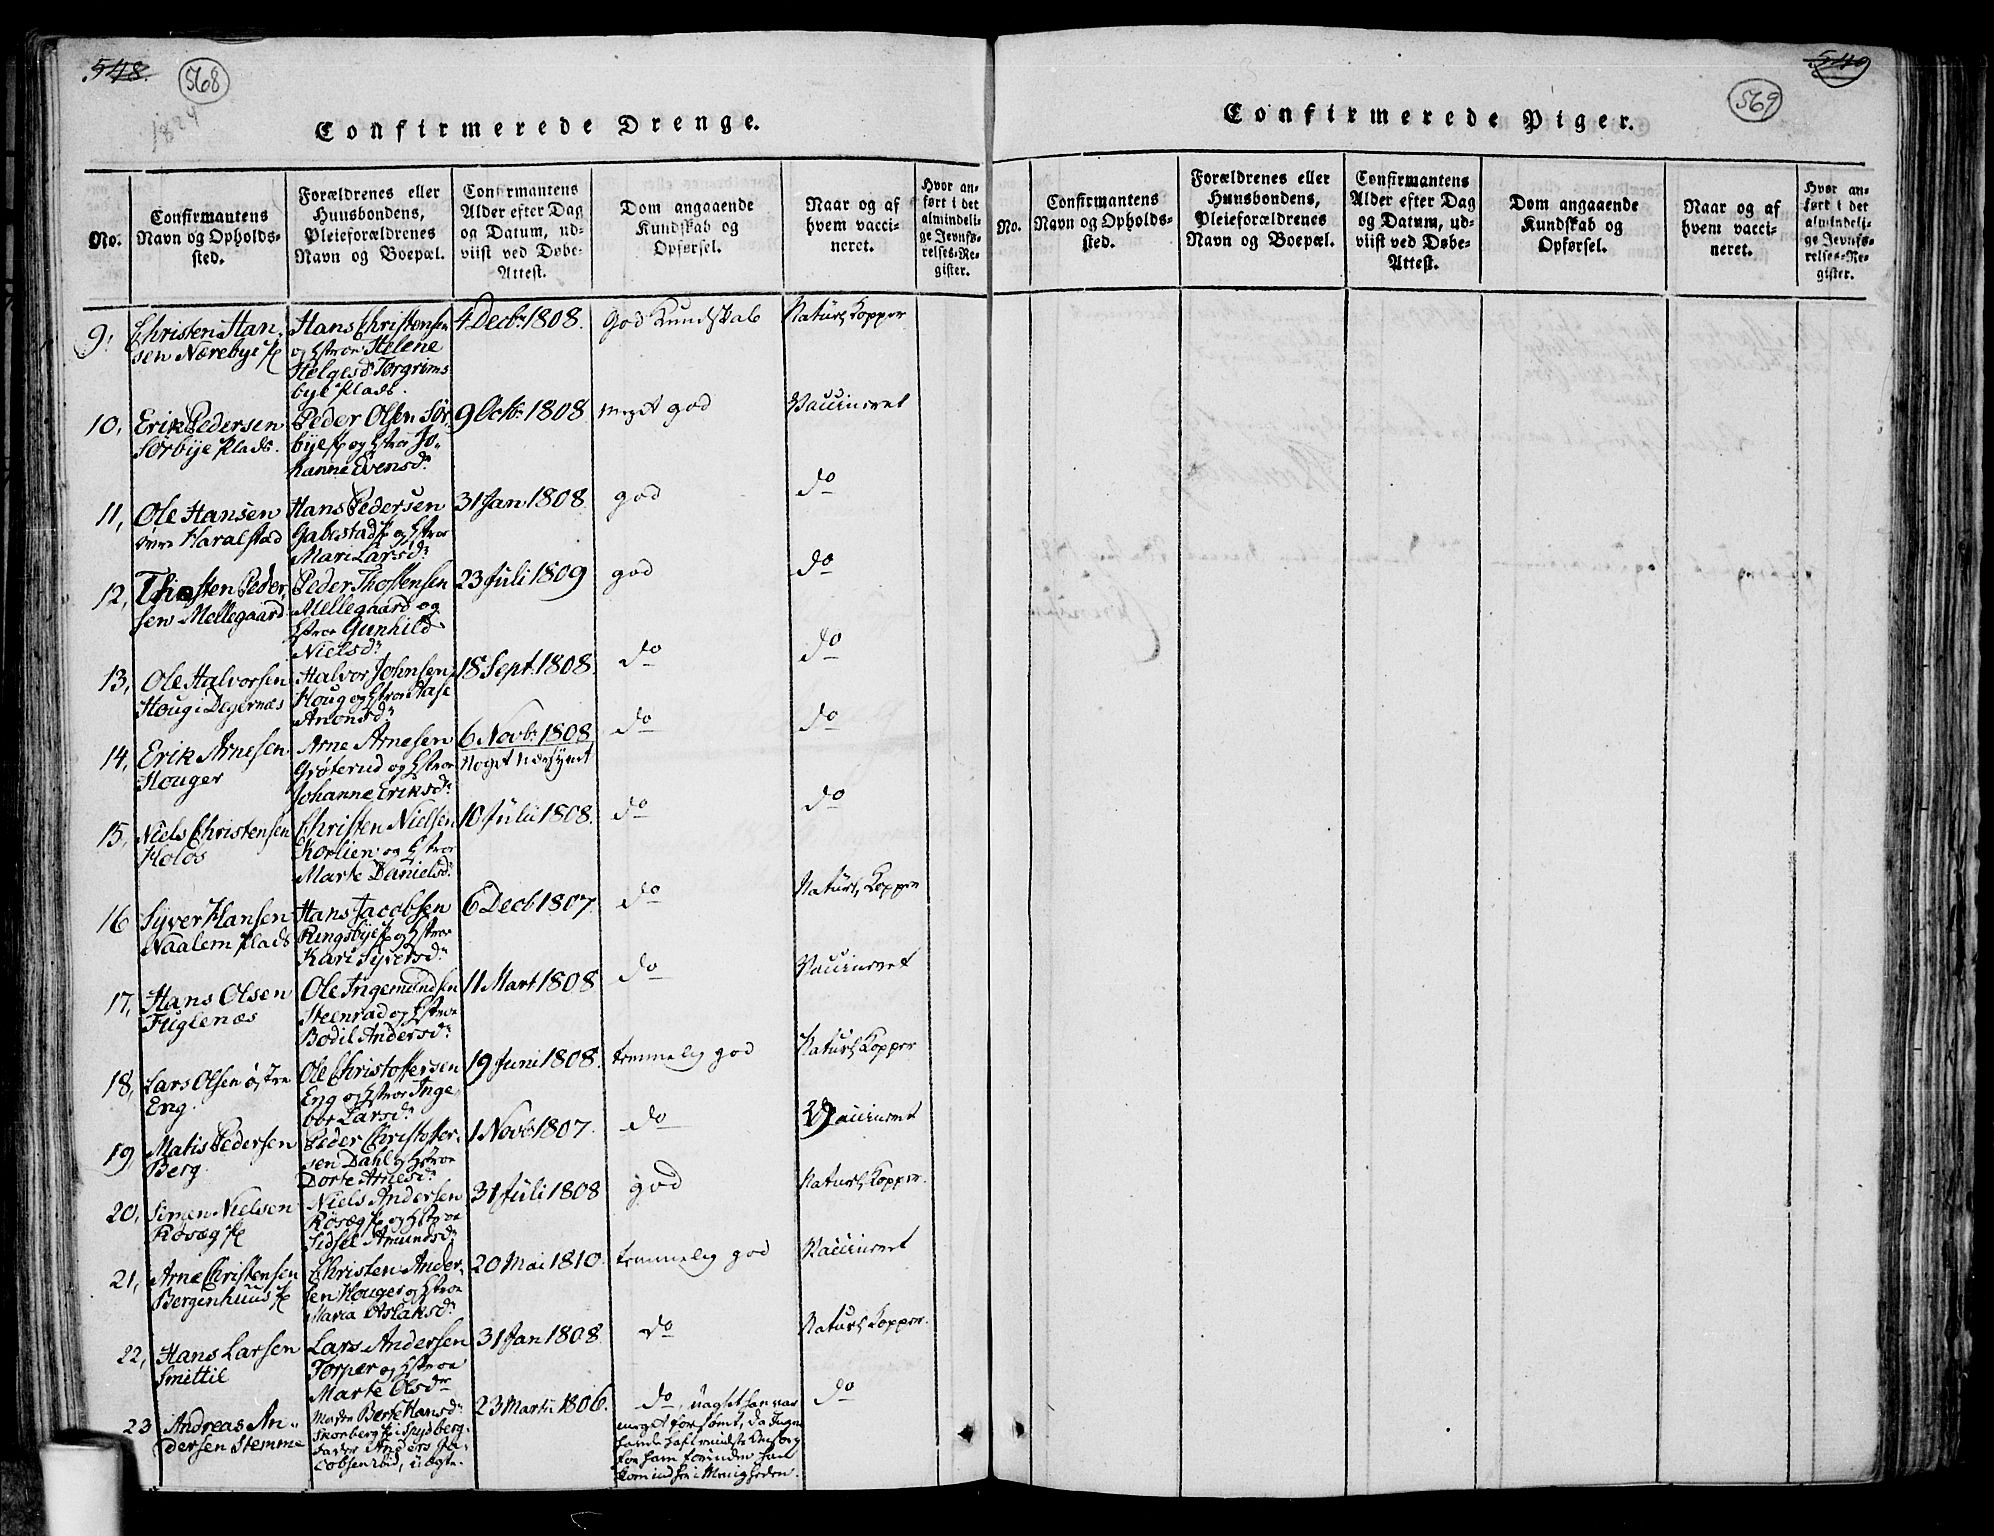 548.
568
1824
Confirmerede Drenge.
No.
Confirmantens
Navn og Opholds-
sted.
Forældrenes eller
Huusbondens,
Pleieforældrenes
Navn og Boepæl.
Confirmantens
Alder efter Dag
og Datum, ud-
viist ved Døbe-
Attest.
Dom angaaende
Kundskab og
Opførsel.
Naar og af
hvem vacci-
neret.
Hvor an-
ført i det
almindeli-
ge Jevnfø-
relses-Re-
gister.
9.
Christen Han-
sen Nærebye
Hans Christensen
og Hstroe Helene
Helgesdr Torgrims
bye Plads.
4 Decbr 1808.
God Kundskab
Naturl. Kopper
10,
Erik Pedersen
Sørbye Plads.
Peder Olsen Sør-
bye og Hstroe Jo-
hanne Evensdr
9 Octbr 1808
meget god
Vaccineret
11,
Ole Hansen
Haralstad
Hans Pedersen
Gabestad og Hstroe
Mari Larsdr
31 Jan. 1808.
god
do
12,
Thosten Peder-
sen Mellegaard
Peder Thostensen
Mellegaard og
Hstroe Gunhild
Nielsdr
23 Juli 1809
god
do
13,
Ole Halvorsen
Houg i Degernæs
Halvor Johnsen
Houg og Hstroe Aase
Amonsdr
18 Sept. 1808.
do
do
14,
Erik Arnesen
Houger
Arne Arnesen
Grøterud og Hstroe
Johanne Eriksdr
6 Novbr 1808
Noget nærsynet
do
do
15,
Niels Christensen
Holøs
Christen Nielsen
Korlien og Hstroe
Marte Danielsdr
10 Julii 1808.
do
do
16
Syver Hansen
Naalem Plads
Hans Jacobsen
Ringsbye og Hstroe
Kari Syversdr
6 Decb 1807.
do
Naturl. Kopper
17,
Hans Olsen
Fuglenæs
Ole Ingemundsen
Steenrad og Hstroe
Bodil Andersdr
11 Mart 1808
do
Vaccineret
18,
Lars Olsen østre
Eng.
Ole Christoffersen
Eng og Hstroe Inge
bor Larsdr
19 Juni 1808.
temmelig god
Naturl. Kopper
19,
Matis Pedersen
Berg
Peder Christoffer-
sen Dahl og Hstroe
Dorte Arnesdr
1 Novb 1807.
do
Vaccineret
20,
Simen Nielsen
Røsæg
Niels Andersen
Røsæg og Hstroe
Sidsel Amundsdr
31 Juli 1808
god
Naturl. Kopper.
21,
Arne Christensen
Bergenhuus
Christen Ander-
sen Houger og Hstroe
Maria Aslaksdr
20 Mai 1810.
temmelig god
Vaccineret
22,
Hans Larsen
Smittil
Lars Andersen
Torper og Hstroe
Marte Olsdr
31 Jan 1808.
do
Naturl. Kopper.
23
Andreas An-
dersen Stemme
Moder Berte Hansdr
Skorberg i Spydberg.
Fader Anders Ja-
cobsen ibid, uægte.
23 Martii 1806.
do, uagtet han var
meget forsømt, da Ingen
havde havt mindste Omsorg
for ham forinden han
kom ind her i Menigheden.
do
549
569
Confirmerede Piger.
No.
Confirmantens
Navn og Opholds-
sted.
Forældrenes eller
Huusbondens,
Pleieforældrenes
Navn og Boepæl.
Confirmantens
Alder efter Dag
og Datum, ud-
viist ved Døbe-
Attest.
Dom angaaende
Kundskab og
Opførsel.
Naar og af
hvem vacci-
neret.
Hvor an-
ført i det
almindeli-
ge Jevnfø-
relses-Re-
gister.